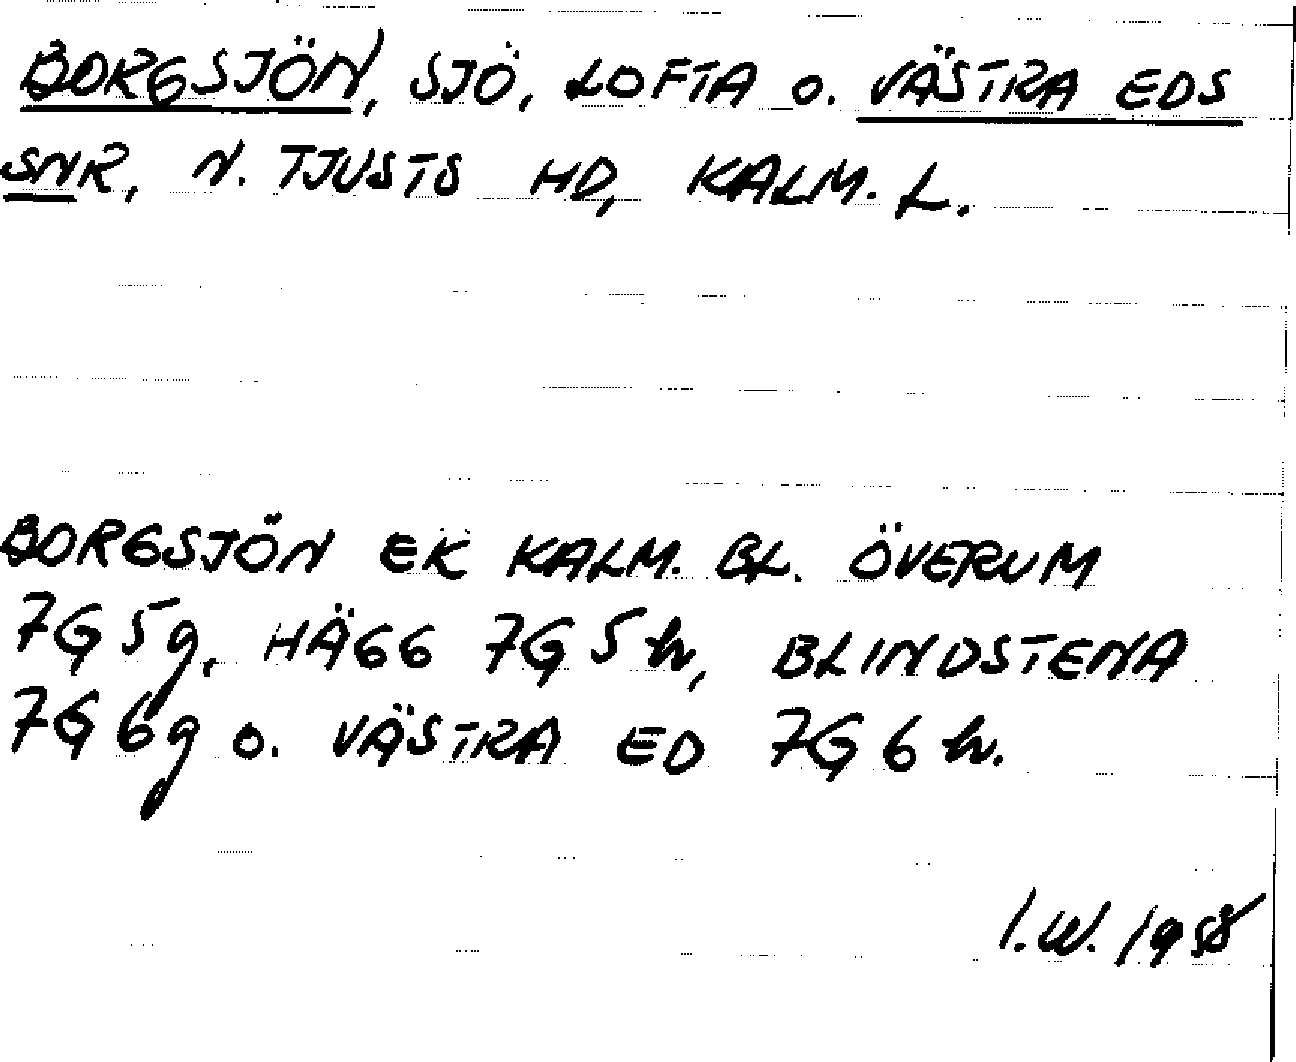 BORGSJÖN, SJÖ, LOFTA o. VÄSTRA EDS
SNR, N. TJUSTS HD, KALM. L.
BORGSJÖN EK KALM. BL. ÖVERUM
7G 5g, HÄGG 7G 5h, BLINDSTENA
7G 6g o. VÄSTRA ED 7G 6h.
I.W. 1958